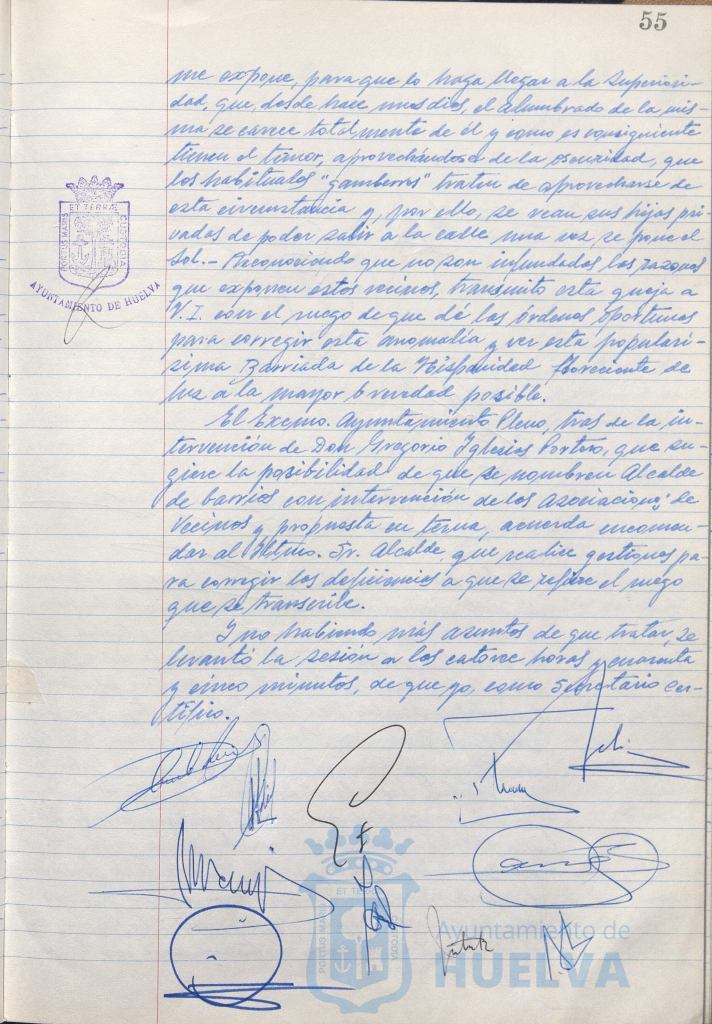 55
me expone, para que lo haga llegar a la Superiori-
dad, que, desde hace unos días, el alumbrado de la mis-
ma se carece totalmente de él y como es consiguiente
tienen el temor, aprovechándose de la oscuridad, que
los habituales "gamberros" traten de aprovecharse de
esta circunstancia y, por ello, se vean sus hijos pri-
vados de poder salir a la calle una vez se pone el
Sol.- Reconociendo que no son infundadas las razones
que exponen estos vecinos, transmito esta queja a
V.I. con el ruego de que dé las órdenes oportunas
para corregir esta anomalía y ver esta populari-
sima Barriada de la Hispanidad floreciente de
luz a la mayor brevedad posible.
El Excmo. Ayuntamiento Pleno, tras de la in-
tervención de Don Gregorio Iglesias Portero, que su-
giere la posibilidad de que se nombren Alcalde
de barrios con intervención de las Asociaciones de
Vecinos y propuesta en terna, acuerda encomen-
dar al Iltmo. Sr. Alcalde, que realice gestiones pa-
ra corregir las deficiencias a que se refiere el ruego
que se transcribe.
Y no habiendo más asuntos de que tratar, se
levantó la sesión a las catorce horas y cuarenta
y cinco minutos, de que yo, como Secretario cer-
tifico.
ET TERRÆ
PORTUS MARIS
CUSTODIA
AYUNTAMIENTO DE HUELVA
ET TERRÆ
PORTUS MARIS
CUSTODIA
Ayuntamiento de
HUELVA